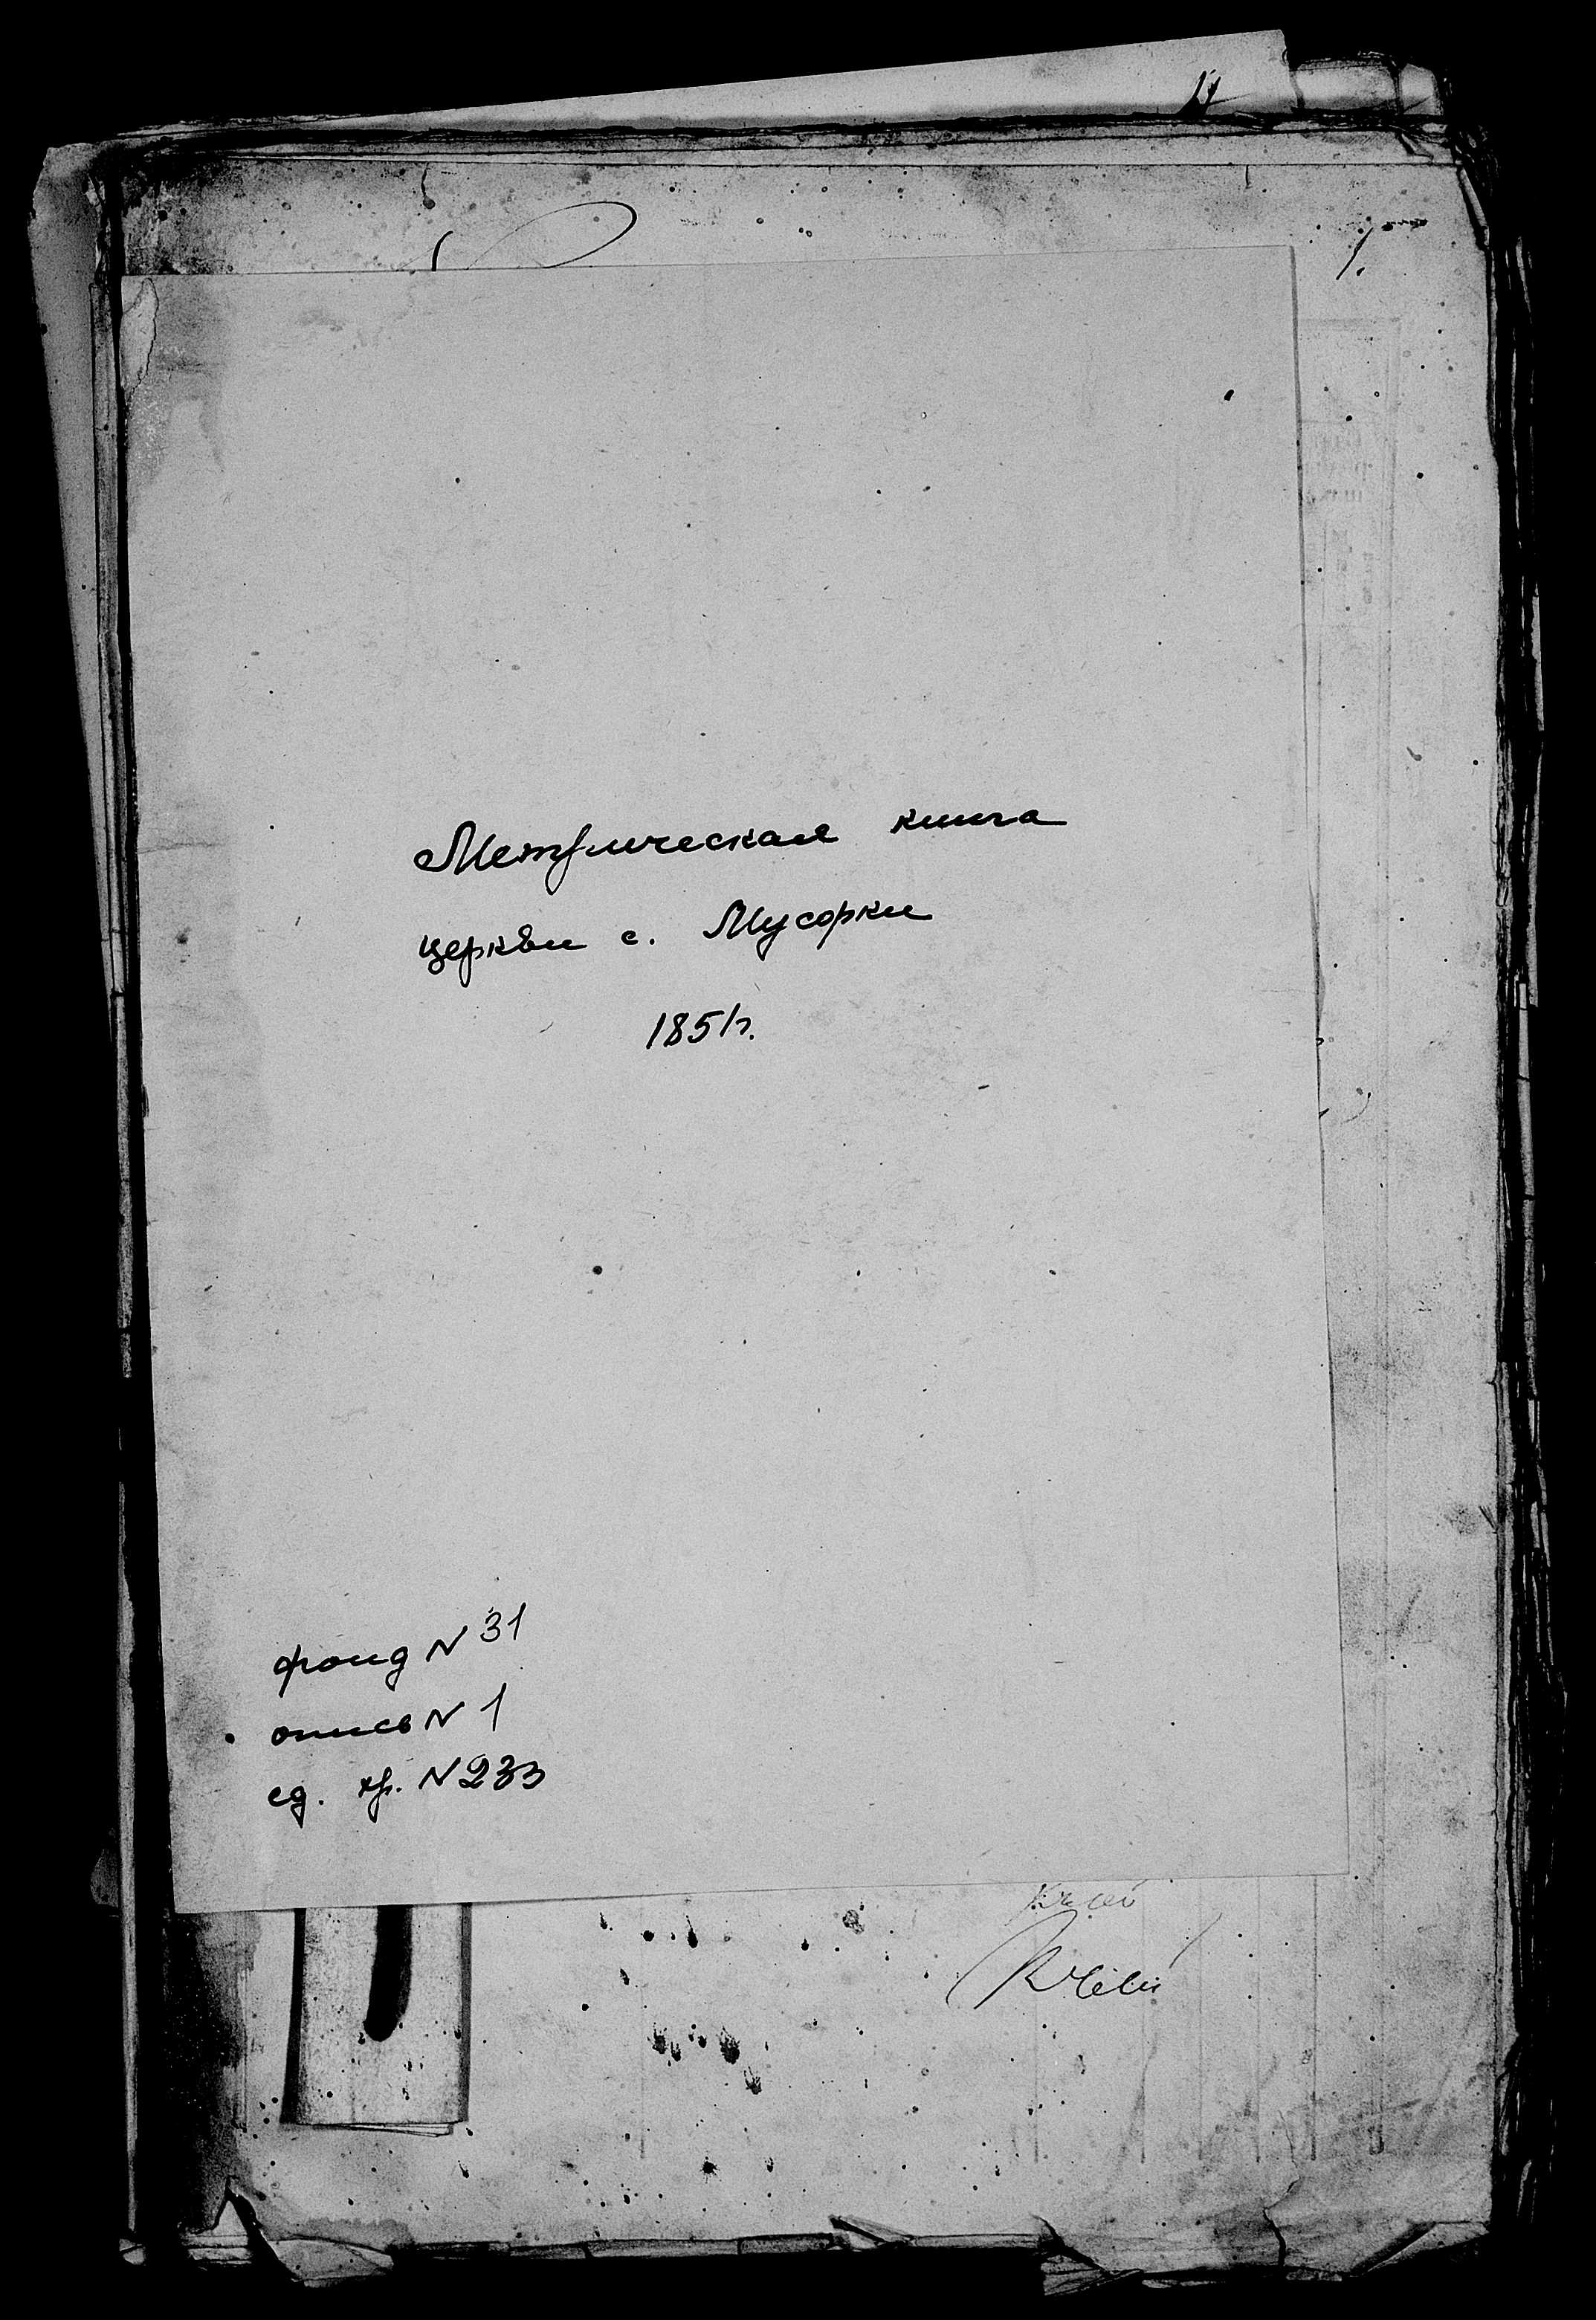 1.
Метрическая книга
церкви с. Мусорки
1851г.
фонд N 31
опись N 1
ед. хр. N 233